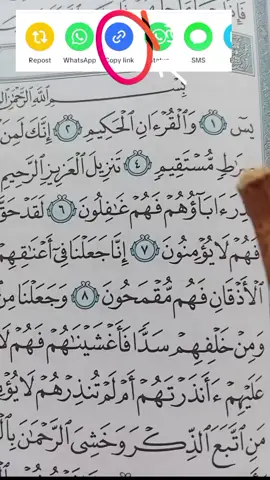 Repost WhatsApp Copy link Status SMS
بِسْمِ ٱللَّهِ ٱلرَّحْمَٰنِ
يسٓ ١ وَٱلْقُرْءَانِ ٱلْحَكِيمِ ٢ إِنَّكَ لَمِنَ
مُّسْتَقِيمٍ ٤ تَنزِيلَ ٱلْعَزِيزِ ٱلرَّحِيمِ
ءَابَآؤُهُمْ فَهُمْ غَٰفِلُونَ ٦ لَقَدْ حَقَّ
فَهُمْ لَا يُؤْمِنُونَ ٧ إِنَّا جَعَلْنَا فِىٓ أَعْنَٰقِهِمْ
ٱلْأَذْقَانِ فَهُم مُّقْمَحُونَ ٨ وَجَعَلْنَا مِنۢ
وَمِنْ خَلْفِهِمْ سَدًّا فَأَغْشَيْنَٰهُمْ فَهُمْ لَا
عَلَيْهِمْ ءَأَنذَرْتَهُمْ أَمْ لَمْ تُنذِرْهُمْ لَا
مَنِ ٱتَّبَعَ ٱلذِّكْرَ وَخَشِىَ ٱلرَّحْمَٰنَ